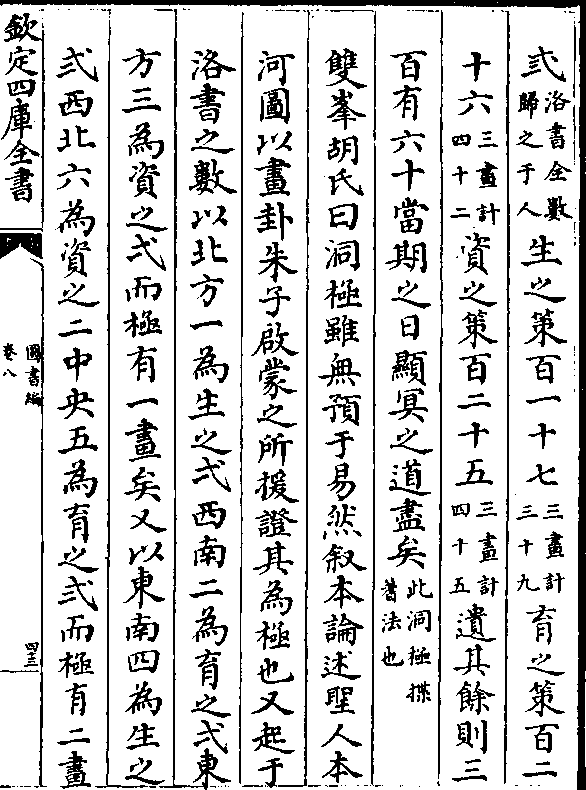 弎洛書全數歸之于人生之策百一十七三畫計三十九育之策百二
十六三畫計四十二資之策百二十五三畫計四十五遺其餘則三
百有六十當期之日顯冥之道盡矣此洞極揲蓍法也
雙峯胡氏曰洞極雖無預于易然叙本論述聖人本
河圖以畫卦朱子啟蒙之所援證其為極也又起于
洛書之數以北方一為生之弌西南二為育之弌東
方三為資之弌而極有一畫矣又以東南四為生之
弍西北六為資之二中央五為育之弍而極有二畫
欽定四庫全書
圖書編
卷八
四三